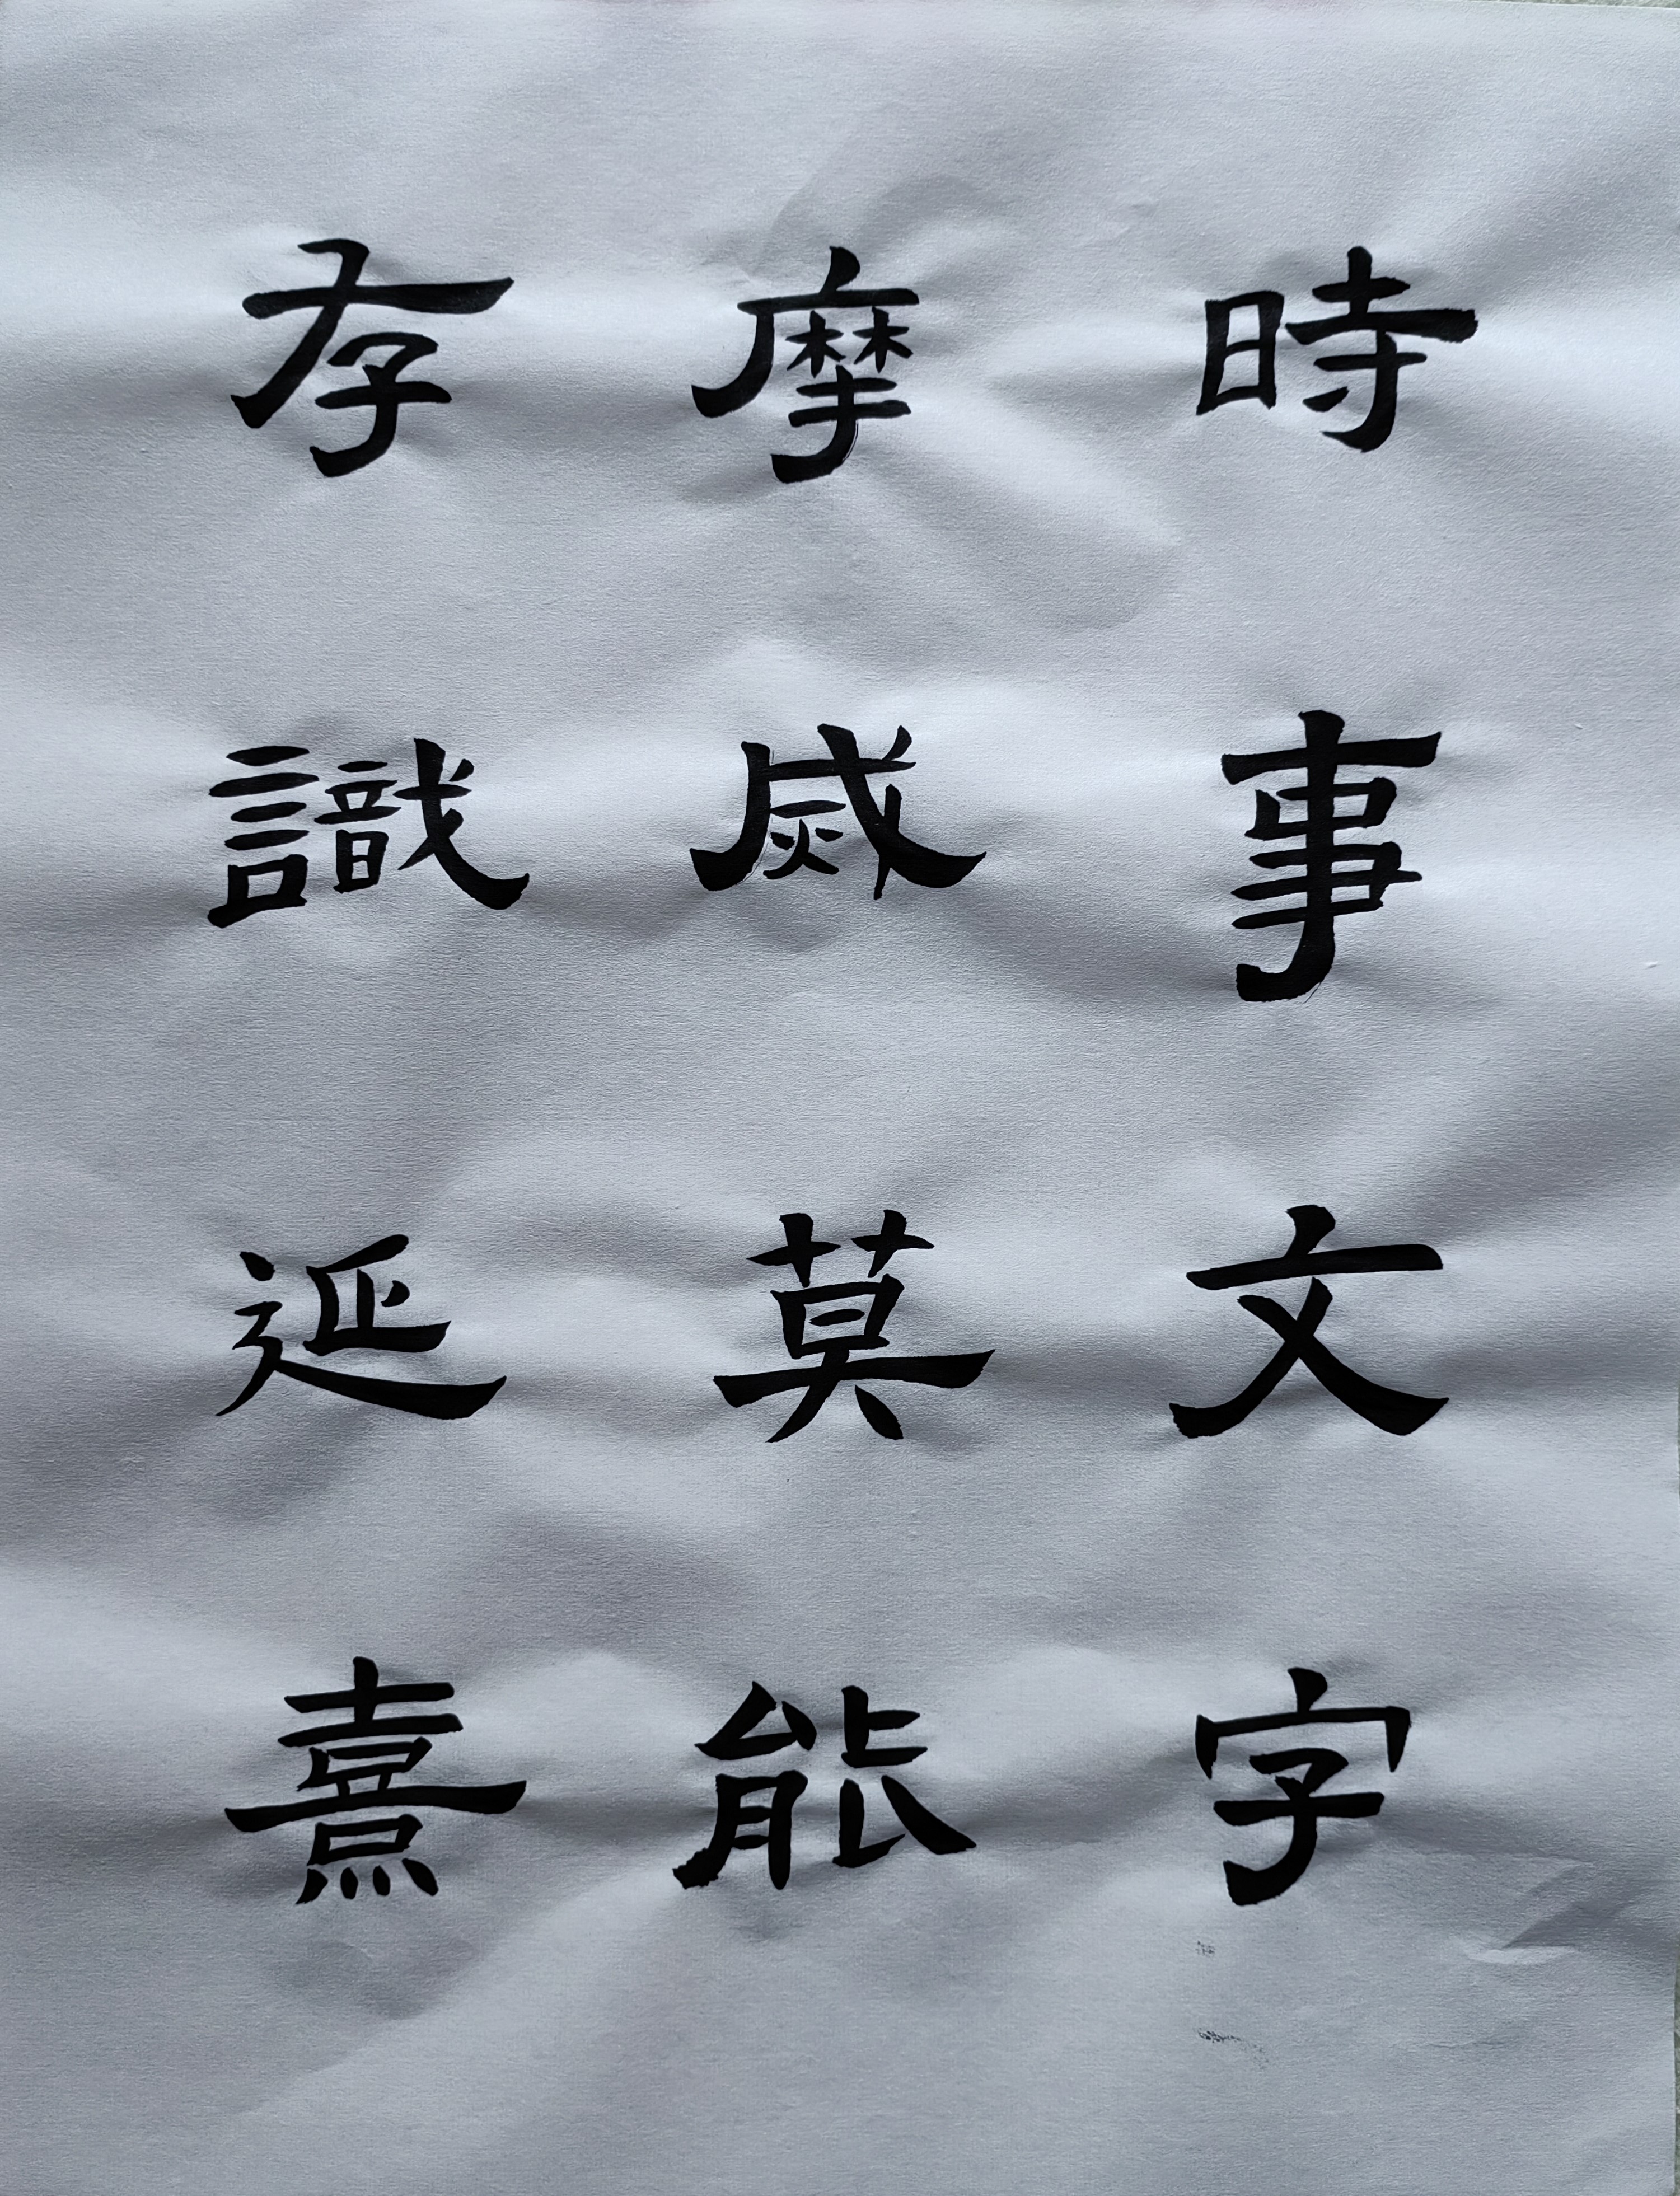 時事文字
摩烕莫能
存識延熹